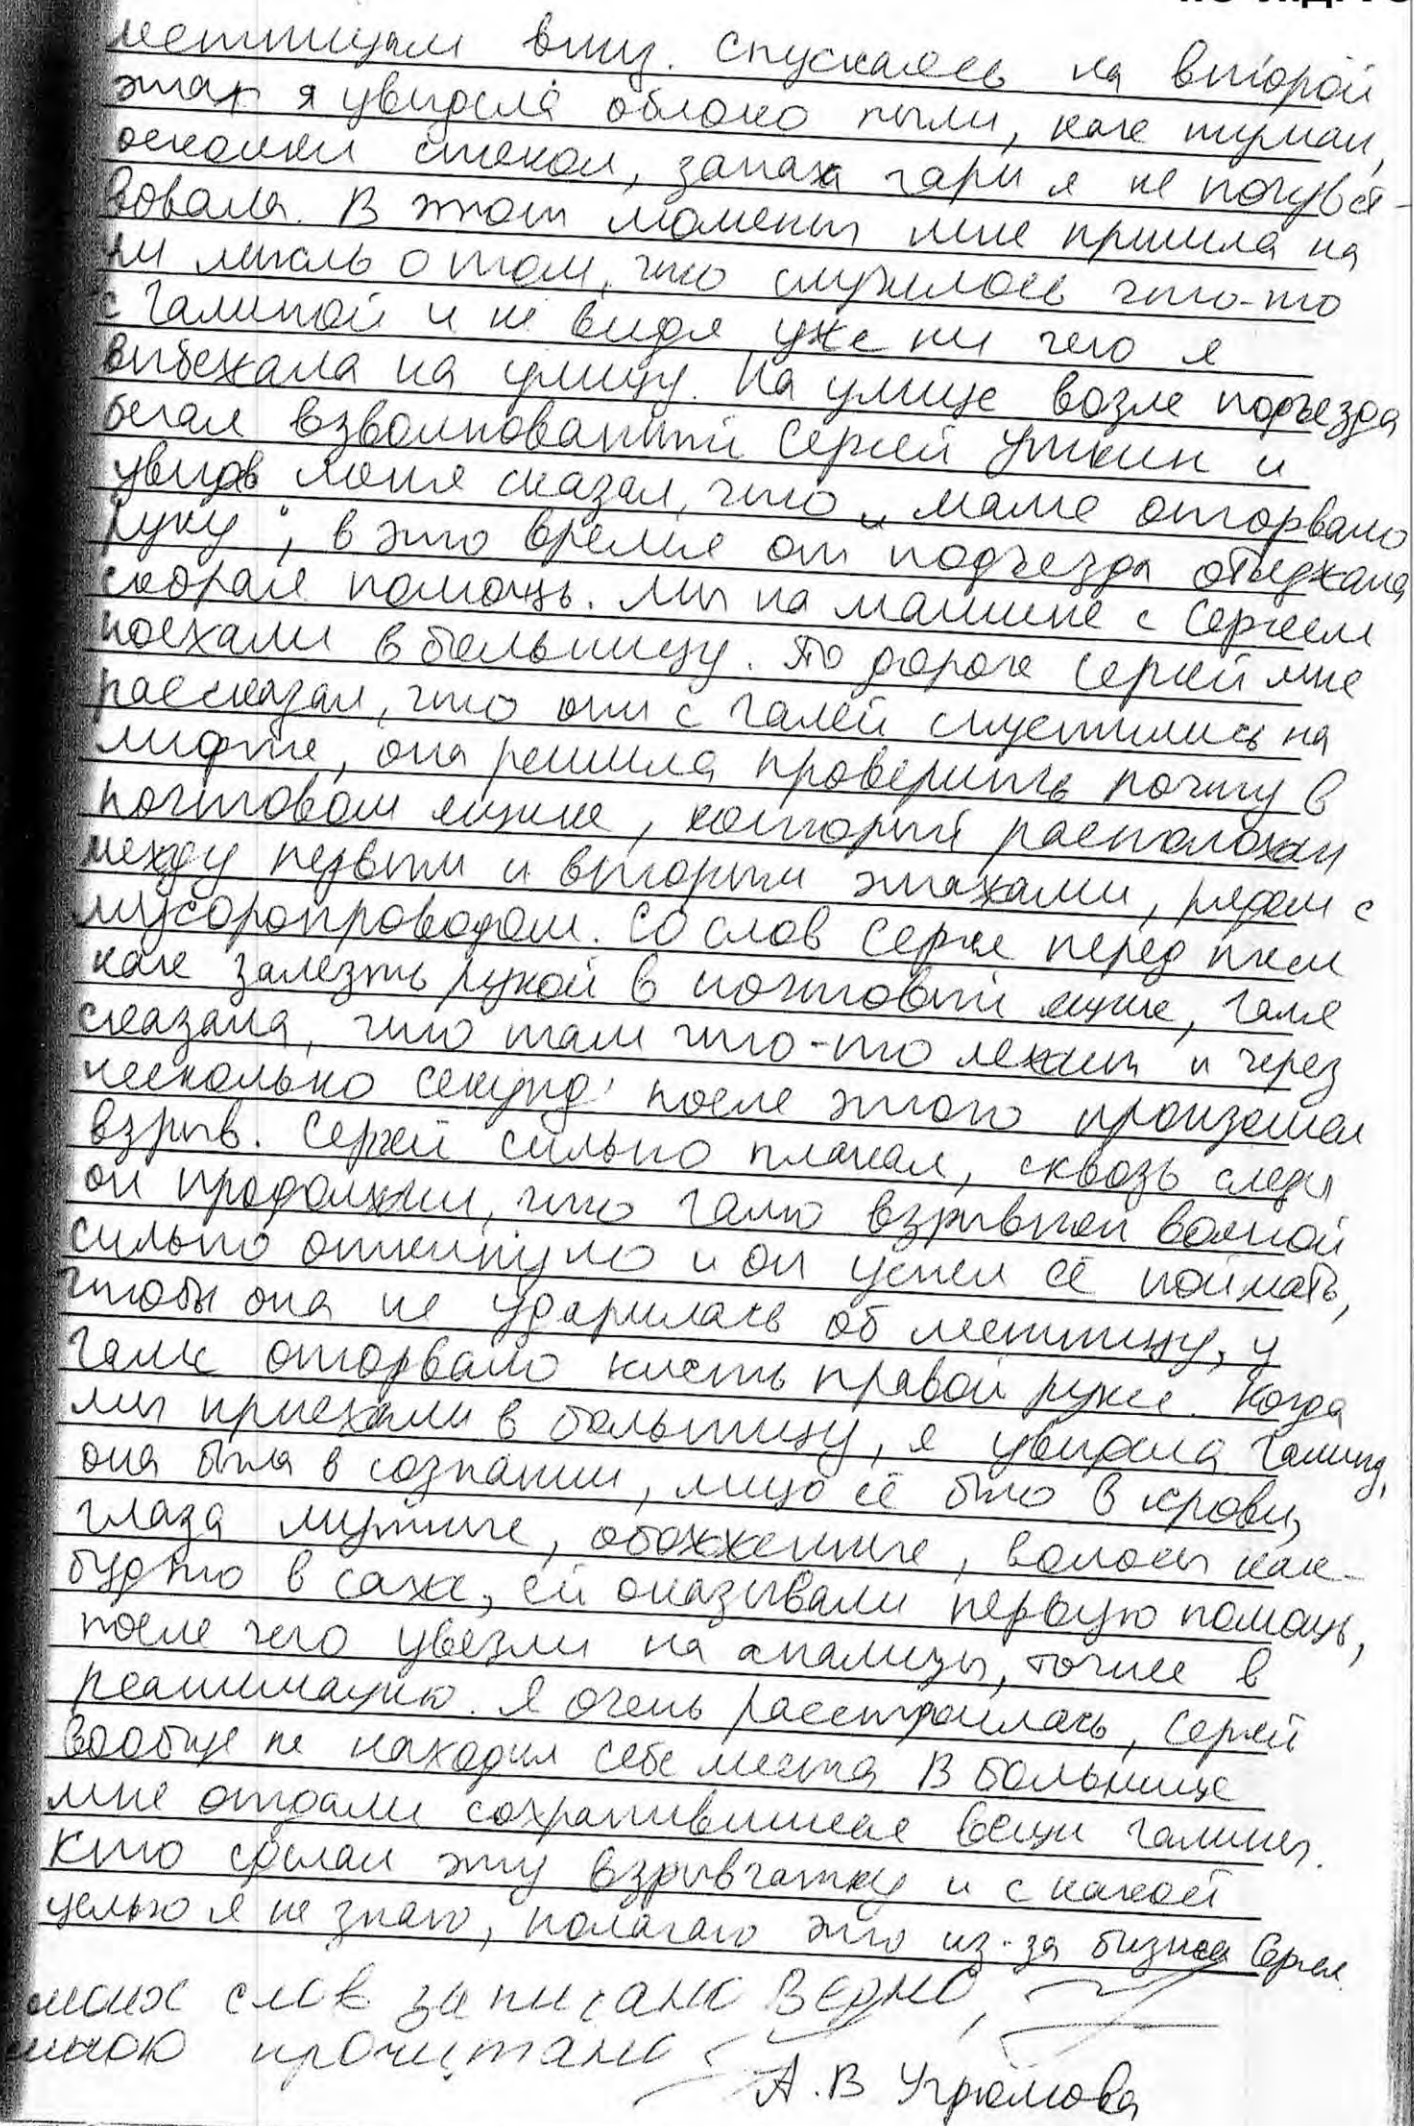 лестницам вниз. Спускаясь на второй
этаж я увидела облако пыли, как туман,
осколки стекол, запаха гари я не почувст-
вовала. В этот момент мне пришла на
ум мысль о том, что случилось что-то
с Галиной и не видя уже ни чего я
выбежала на улицу. На улице возле подъезда
бегал взволнованный Сергей Уткин и
увидев меня сказал, что „маме оторвало
руку", в это время от подъезда отъезжала
скорая помощь. Мы на машине с Сергеем
поехали в больницу. По дороге Сергей мне
рассказал, что они с Галей спустились на
лифте, она решила проверить почту в
почтовом ящике, который расположен
между первым и вторым этажами, рядом с
мусоропроводом. Со слов Сергея перед тем
как залезть рукой в почтовый ящик, Галя
сказала, что там что-то лежит и через
несколько секунд после этого произошел
взрыв. Сергей сильно плакал, сквозь слезы
он продолжил, что Галю взрывной волной
сильно откинуло и он успел её поймать,
чтобы она не ударилась об лестницу, у
Гали оторвало кисть правой руки. Когда
мы приехали в больницу, я увидела Галину,
она была в сознании, лицо её было в крови,
глаза мутные, обожженные, волосы как-
будто в саже, ей оказывали первую помощь,
после чего увезли на анализы, точнее в
реанимацию. Я очень расстроилась, Сергей
вообще не находил себе места В больнице
мне отдали сохранившиеся вещи Галины.
Кто сделал эту взрывчатку и с какой
целью я не знаю, полагаю это из-за бизнеса Сергея.
моих слов записано верно,
мною прочитано
А.В Угрюмова